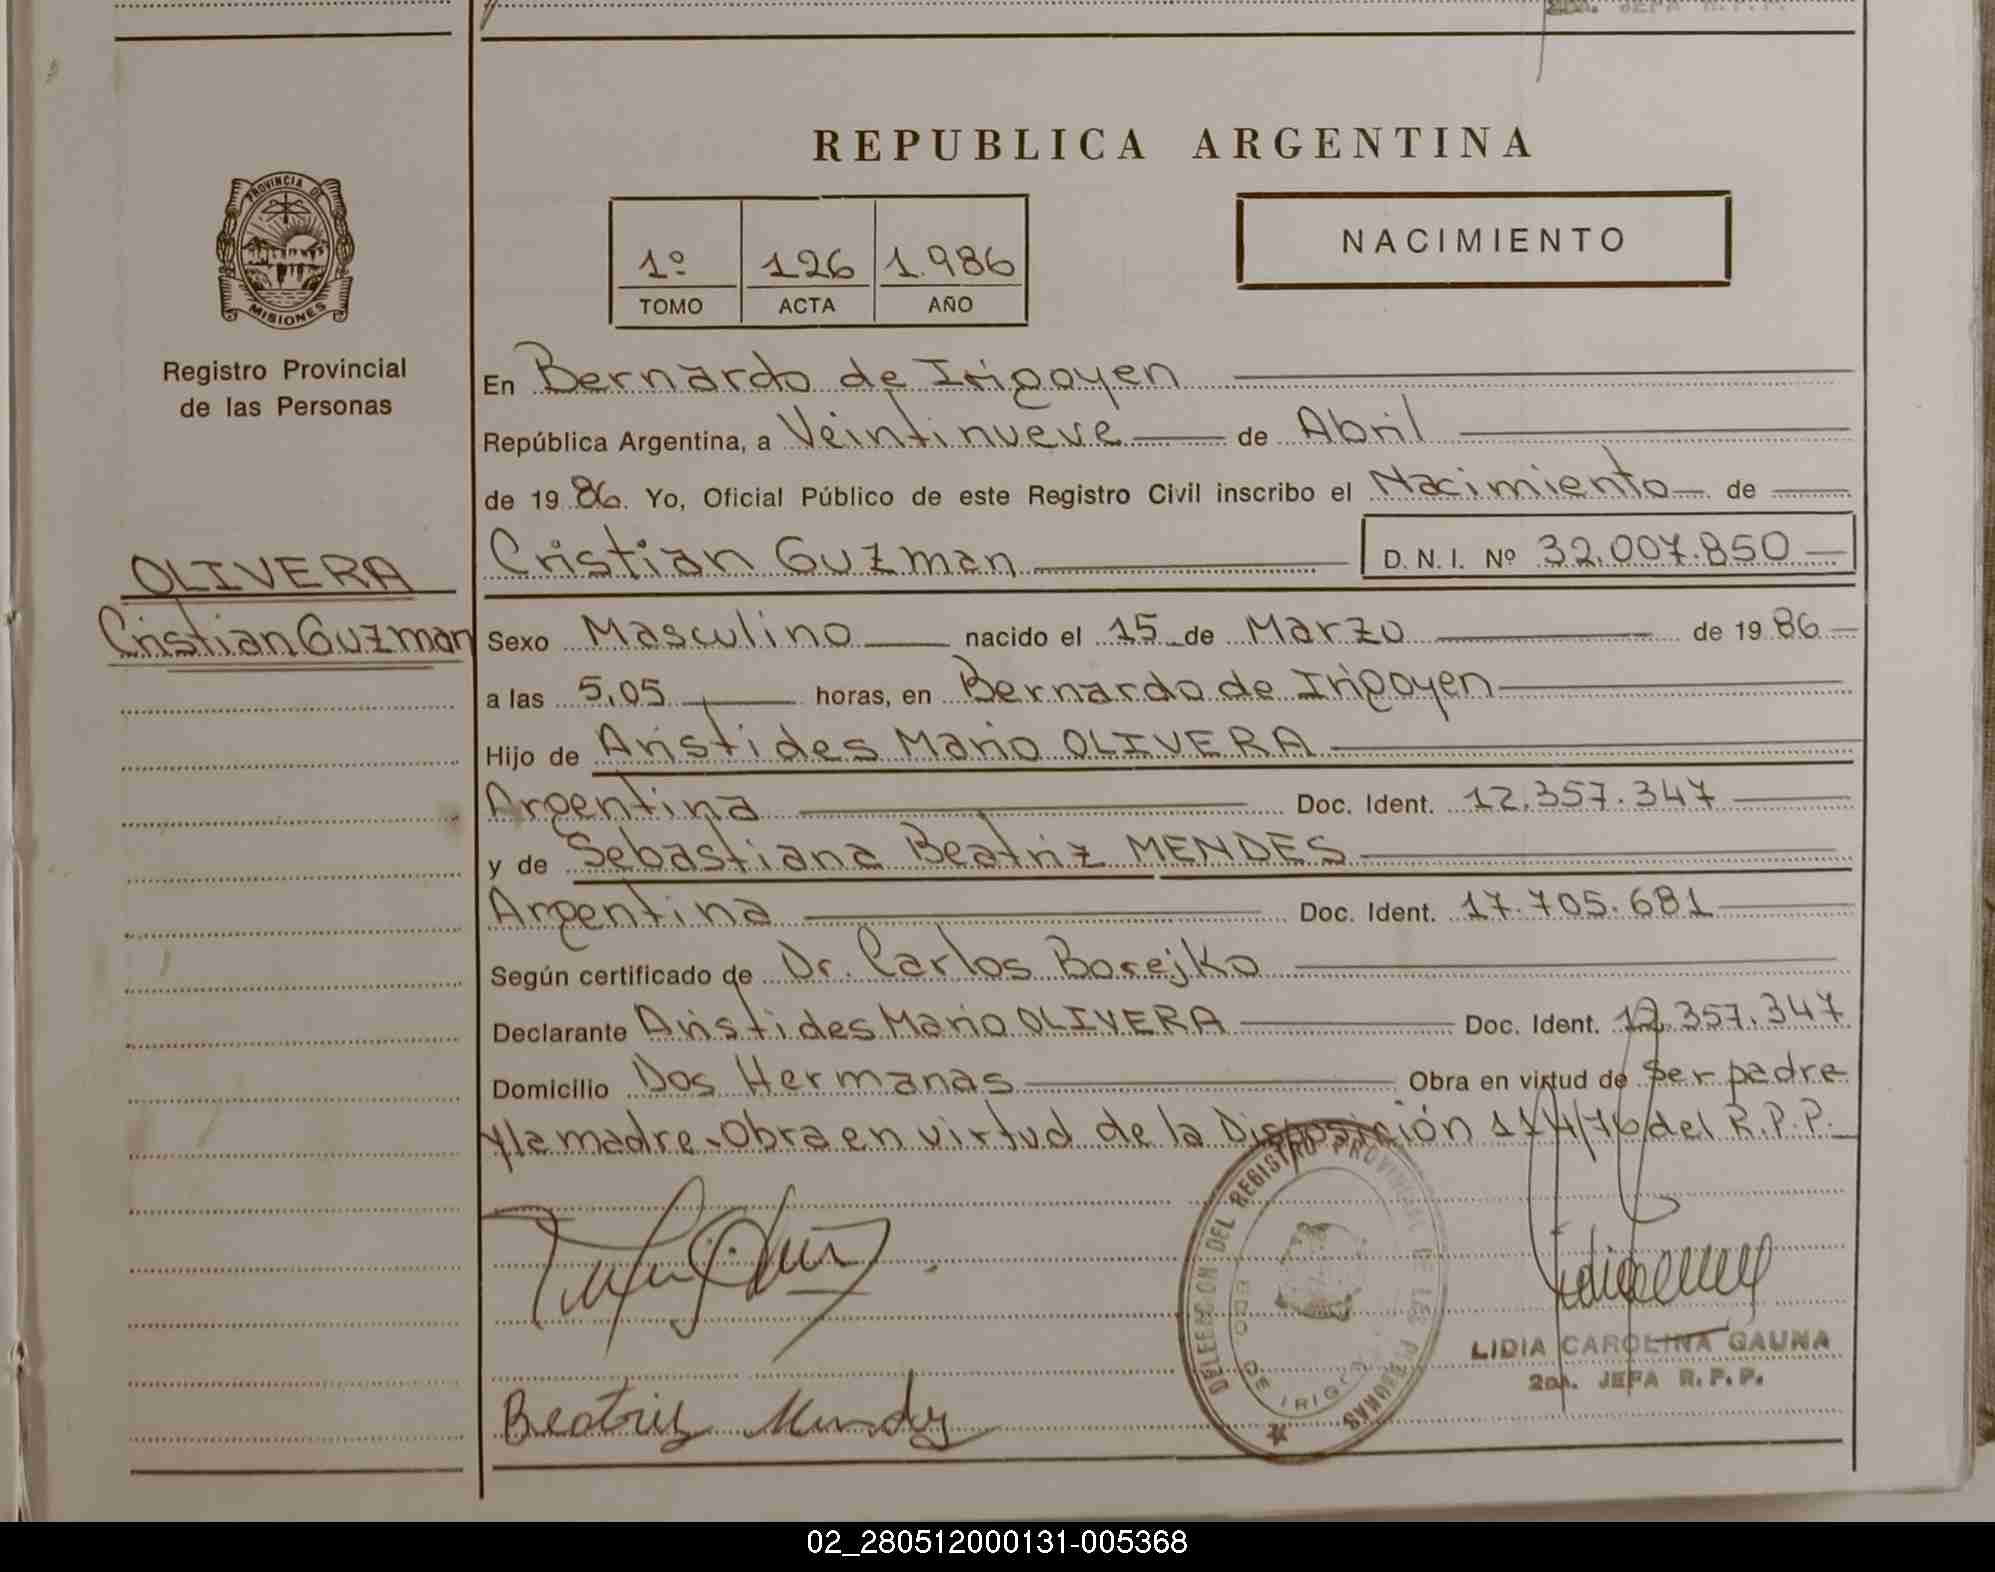 2da. JEFA R.P.P.
REPUBLICA ARGENTINA
PROVINCIA DE
MISIONES
Registro Provincial
de las Personas
1º 126 1.986
TOMO ACTA AÑO
NACIMIENTO
En Bernardo de Irigoyen
República Argentina, a Veintinueve de Abril
de 19 86. Yo, Oficial Público de este Registro Civil inscribo el Nacimiento de
OLIVERA
Cristian Guzman
Cristian Guzman D. N. I. Nº 32.007.850
Sexo Masculino nacido el 15 de Marzo de 19 86
a las 5,05 horas, en Bernardo de Irigoyen
Hijo de Aristides Mario OLIVERA
Argentina Doc. Ident. 12.357.347
y de Sebastiana Beatriz MENDES
Argentina Doc. Ident. 17.705.681
Según certificado de Dr. Carlos Borejko
Declarante Aristides Mario OLIVERA Doc. Ident. 12.357.347
Domicilio Dos Hermanas Obra en virtud de ser padre
y la madre. Obra en virtud de la Disposición 114/76 del R.P.P.
DELEGACION DEL REGISTRO PROVINCIAL DE LAS PERSONAS
BDO. DE IRIGOYEN
LIDIA CAROLINA GAUNA
2da. JEFA R.P.P.
Beatriz
02_280512000131-005368